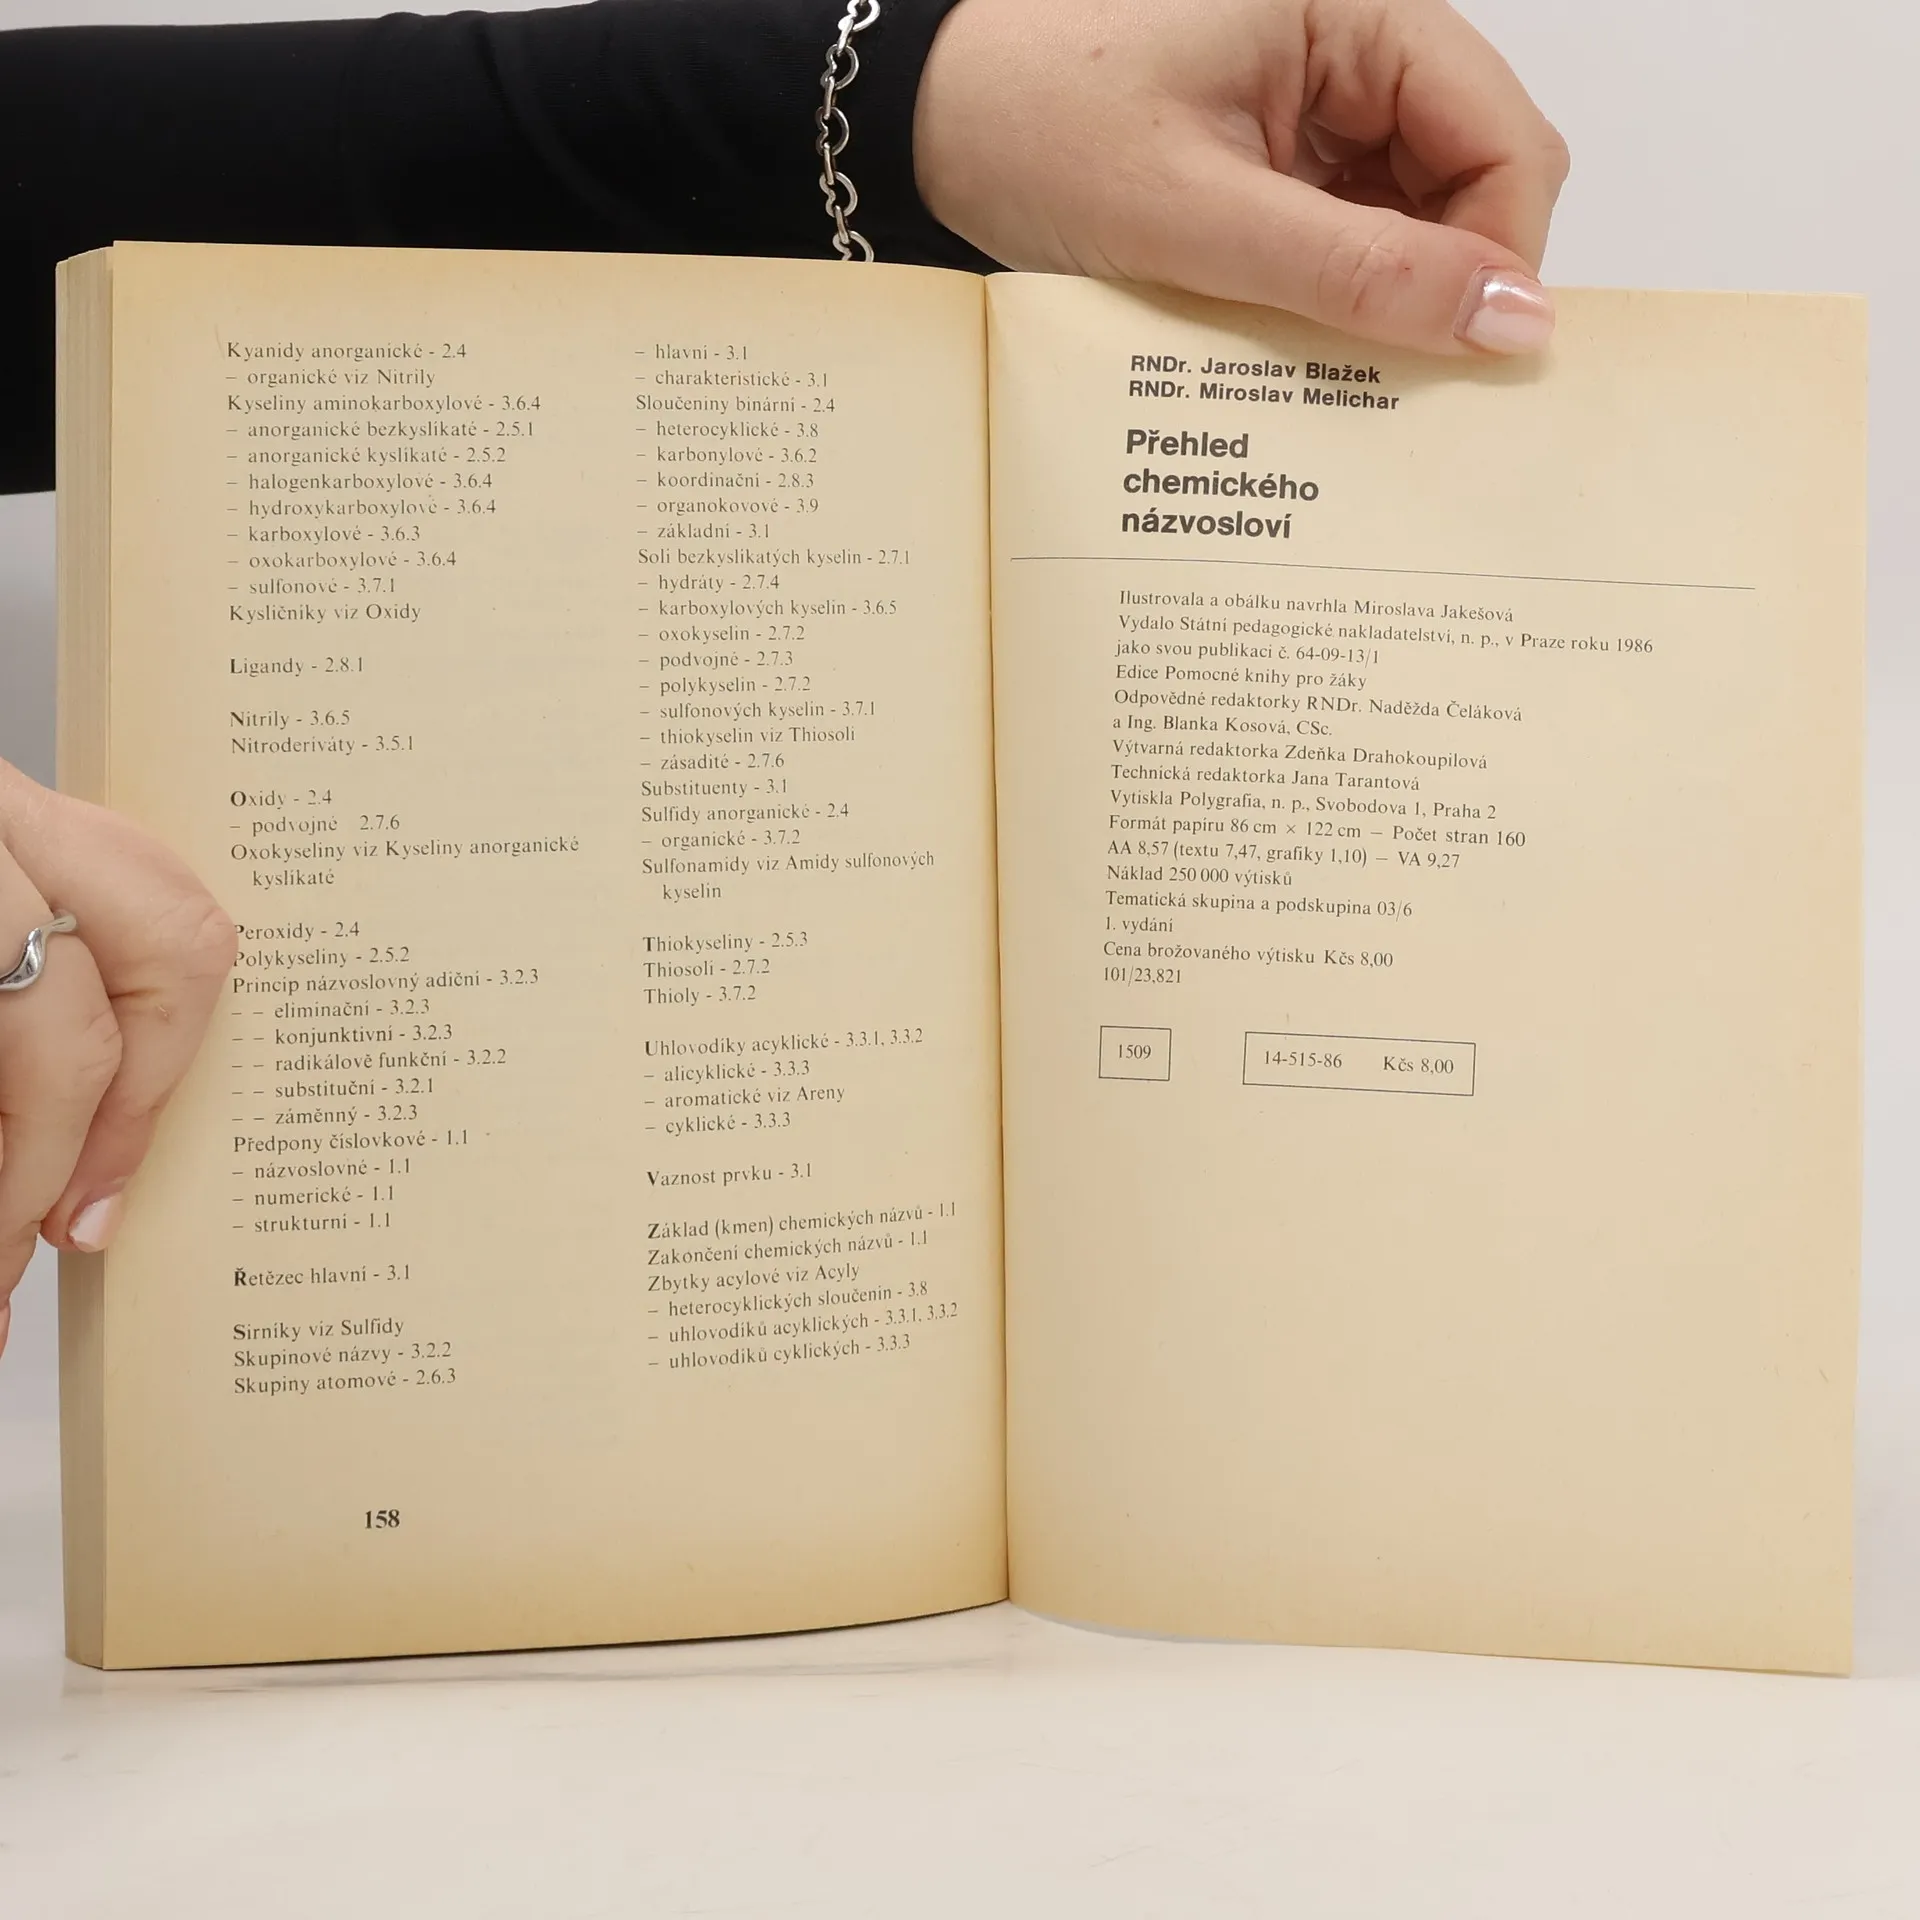 Kyanidy anorganické - 2.4
– organické viz Nitrily
Kyseliny aminokarboxylové - 3.6.4
– anorganické bezkyslíkaté - 2.5.1
– anorganické kyslíkaté - 2.5.2
– halogenkarboxylové - 3.6.4
– hydroxykarboxylové - 3.6.4
– karboxylové - 3.6.3
– oxokarboxylové - 3.6.4
– sulfonové - 3.7.1
Kysličníky viz Oxidy
Ligandy - 2.8.1
Nitrily - 3.6.5
Nitroderiváty - 3.5.1
Oxidy - 2.4
– podvojné 2.7.6
Oxokyseliny viz Kyseliny anorganické
kyslíkaté
Peroxidy - 2.4
Polykyseliny - 2.5.2
Princip názvoslovný adiční - 3.2.3
– – eliminační - 3.2.3
– – konjunktivní - 3.2.3
– – radikálově funkční - 3.2.2
– – substituční - 3.2.1
– – záměnný - 3.2.3
Předpony číslovkové - 1.1
– názvoslovné - 1.1
– numerické - 1.1
– strukturní - 1.1
Řetězec hlavní - 3.1
Sirníky viz Sulfidy
Skupinové názvy - 3.2.2
Skupiny atomové - 2.6.3
– hlavní - 3.1
– charakteristické - 3.1
Sloučeniny binární - 2.4
– heterocyklické - 3.8
– karbonylové - 3.6.2
– koordinační - 2.8.3
– organokovové - 3.9
– základní - 3.1
Soli bezkyslíkatých kyselin - 2.7.1
– hydráty - 2.7.4
– karboxylových kyselin - 3.6.5
– oxokyselin - 2.7.2
– podvojné - 2.7.3
– polykyselin - 2.7.2
– sulfonových kyselin - 3.7.1
– thiokyselin viz Thiosoli
– zásadité - 2.7.6
Substituenty - 3.1
Sulfidy anorganické - 2.4
– organické - 3.7.2
Sulfonamidy viz Amidy sulfonových
kyselin
Thiokyseliny - 2.5.3
Thiosoli - 2.7.2
Thioly - 3.7.2
Uhlovodíky acyklické - 3.3.1, 3.3.2
– alicyklické - 3.3.3
– aromatické viz Areny
– cyklické - 3.3.3
Vaznost prvku - 3.1
Základ (kmen) chemických názvů - 1.1
Zakončení chemických názvů - 1.1
Zbytky acylové viz Acyly
– heterocyklických sloučenin - 3.8
– uhlovodíků acyklických - 3.3.1, 3.3.2
– uhlovodíků cyklických - 3.3.3
158
RNDr. Jaroslav Blažek
RNDr. Miroslav Melichar
Přehled
chemického
názvosloví
Ilustrovala a obálku navrhla Miroslava Jakešová
Vydalo Státní pedagogické nakladatelství, n. p., v Praze roku 1986
jako svou publikaci č. 64-09-13/1
Edice Pomocné knihy pro žáky
Odpovědné redaktorky RNDr. Naděžda Čeláková
a Ing. Blanka Kosová, CSc.
Výtvarná redaktorka Zdeňka Drahokoupilová
Technická redaktorka Jana Tarantová
Vytiskla Polygrafia, n. p., Svobodova 1, Praha 2
Formát papíru 86 cm × 122 cm — Počet stran 160
AA 8,57 (textu 7,47, grafiky 1,10) — VA 9,27
Náklad 250 000 výtisků
Tematická skupina a podskupina 03/6
1. vydání
Cena brožovaného výtisku Kčs 8,00
101/23,821
1509
14-515-86 Kčs 8,00